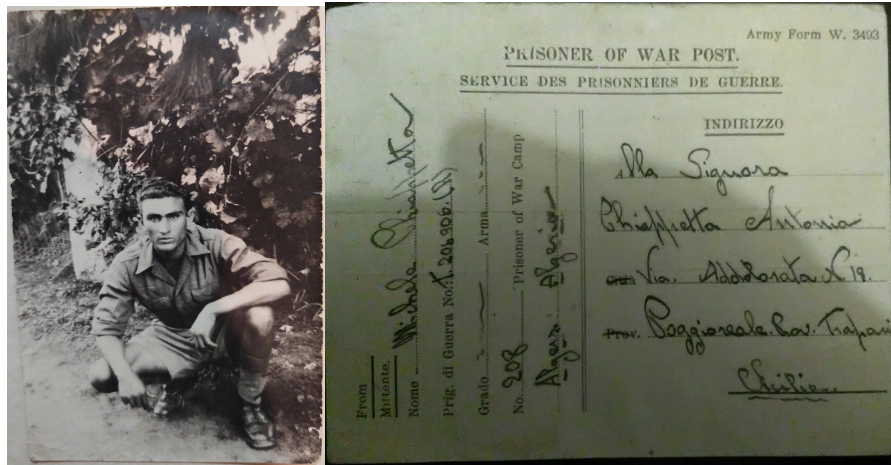 Army Form W. 3493
PRISONER OF WAR POST.
SERVICE DES PRISONNIERS DE GUERRE.
INDIRIZZO
Alla Signora
Chiappetta Antonia
Via. Addolorata N 19.
Prov. Poggioreale Prov. Trapani
Sicilia.
From
Mittente.
Nome Michele Chiappetta
Prig. di Guerra No.
Grado Arma
No. 208 Prisoner of War Camp
Algeri Algeria